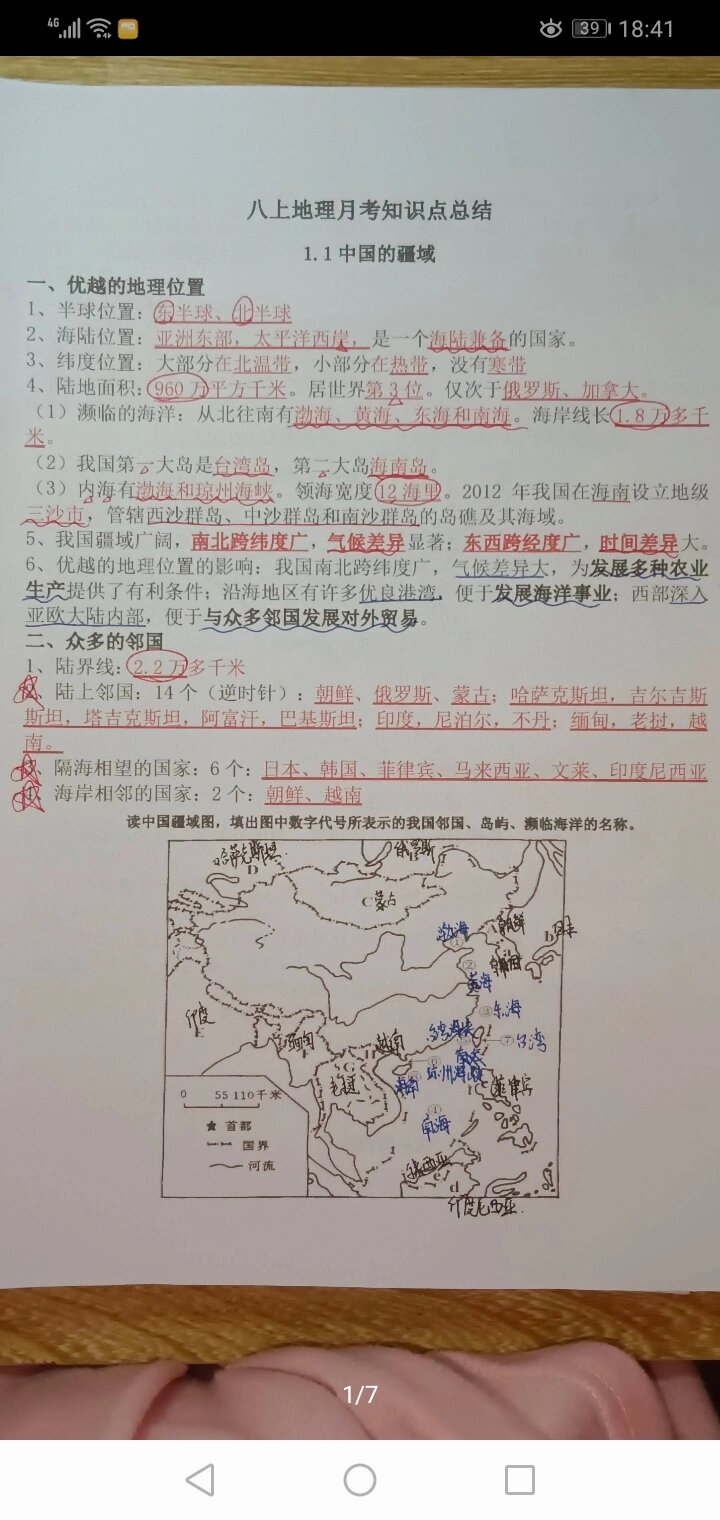 4G
39
18:41
八上地理月考知识点总结
1.1中国的疆域
一、优越的地理位置
1、半球位置：东半球、北半球
2、海陆位置：亚洲东部，太平洋西岸，是一个海陆兼备的国家。
3、纬度位置：大部分在北温带，小部分在热带，没有寒带
4、陆地面积：960万平方千米。居世界第3位。仅次于俄罗斯、加拿大。
（1）濒临的海洋：从北往南有渤海、黄海、东海和南海。海岸线长1.8万多千
米。
（2）我国第一大岛是台湾岛，第二大岛海南岛。
（3）内海有渤海和琼州海峡。领海宽度12海里。2012年我国在海南设立地级
三沙市，管辖西沙群岛、中沙群岛和南沙群岛的岛礁及其海域。
5、我国疆域广阔，南北跨纬度广，气候差异显著；东西跨经度广，时间差异大。
6、优越的地理位置的影响：我国南北跨纬度广，气候差异大，为发展多种农业
生产提供了有利条件；沿海地区有许多优良港湾，便于发展海洋事业；西部深入
亚欧大陆内部，便于与众多邻国发展对外贸易。
二、众多的邻国
1、陆界线：2.2万多千米
2、陆上邻国：14个（逆时针）：朝鲜、俄罗斯、蒙古；哈萨克斯坦，吉尔吉斯
斯坦，塔吉克斯坦，阿富汗，巴基斯坦；印度，尼泊尔，不丹；缅甸，老挝，越
南。
3、隔海相望的国家：6个：日本、韩国、菲律宾、马来西亚、文莱、印度尼西亚
4、海岸相邻的国家：2个：朝鲜、越南
读中国疆域图，填出图中数字代号所表示的我国邻国、岛屿、濒临海洋的名称。
哈萨克斯坦
D
俄罗斯
C蒙古
渤海
①
A朝鲜
b日本
②
黄海
韩国
③东海
印度
E
缅甸
F
越南
H
台湾海峡
⑦台湾
老挝
G
海南
琼州海峡
菲律宾
C
④
南海
马来西亚
e
d
印度尼西亚
0 55 110千米
★ 首都
国界
河流
1/7